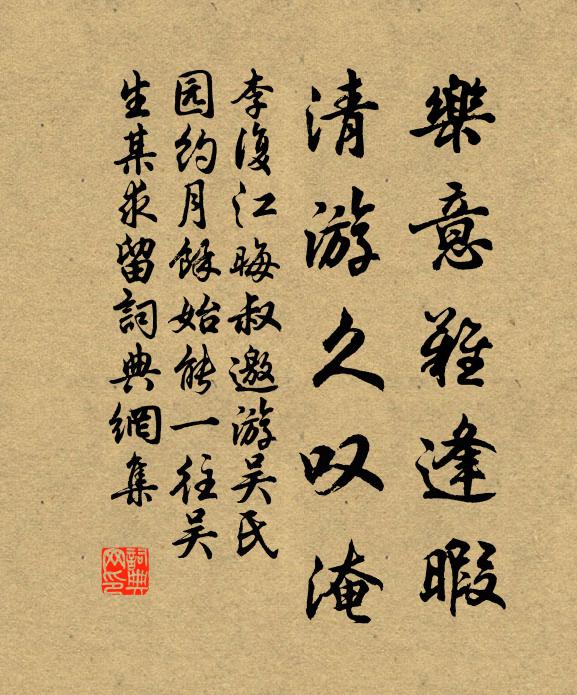 樂意難逢暇
清游久叹淹
李復江晦叔邀游吴氏
园约月餘始能一往吴
生某求留詞典網集
詞典网印